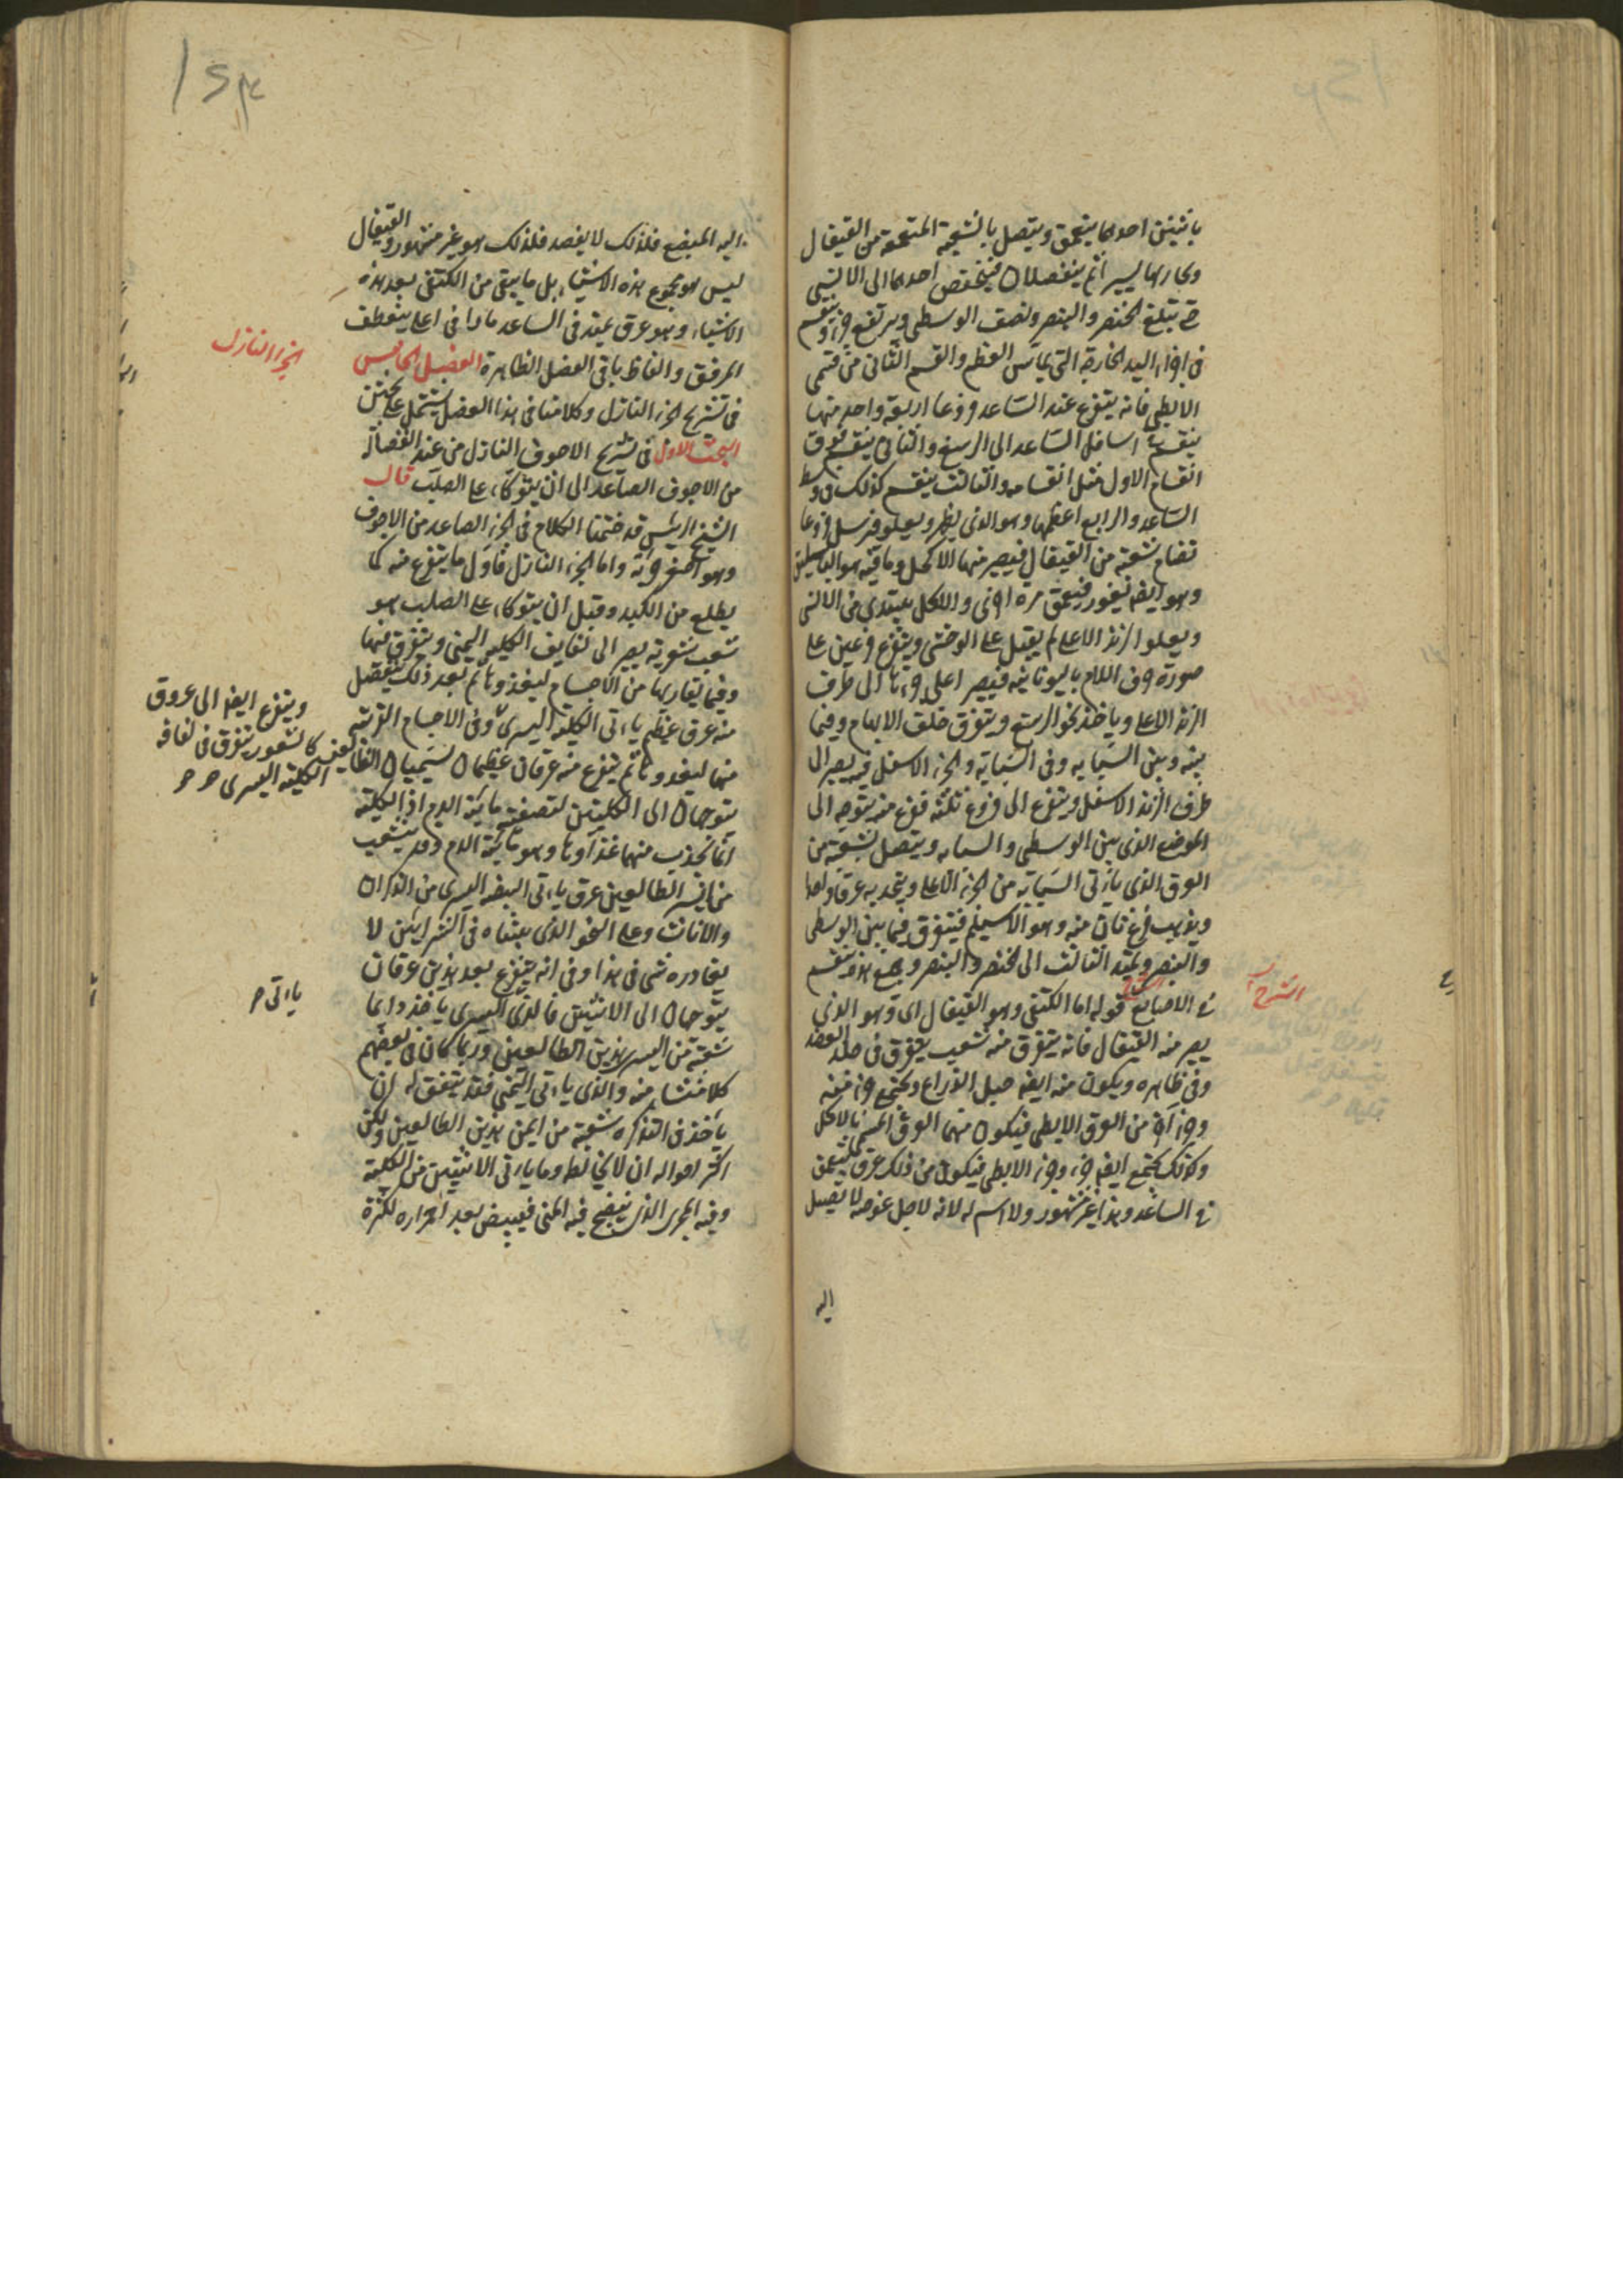 باثنين احدهما يتعمق ويتصل بالشعبة المتعمقة من القيفال
ويجاريها يسيرا ثم ينفصلان فينخفض احدهما الى الانسى
حتى تبلغ الخنصر والبنصر ونصف الوسطى ويرتفع جزء وينقسم
فى اجزاء اليد الخارجة التى يماس العظم والقسم الثانى من قسمى
الابطى فانه يتفرع عند الساعد فروعا اربعة واحد منها
ينقسم فى اسافل الساعد الى الرسغ والثانى ينقسم فوق
انقسام الاول مثل انقسامه والثالث ينقسم كذلك فى وسط
الساعد والرابع اعظمها وهو الذى يظهر ويعلو فيرسل فروعا
تضام شعبة من القيفال فيصير منها الاكحل وباقيه هو الباسليق
وهو ايضا يغور فيتعمق مرة اخرى والاكحل يبتدى من الانسى
ويعلوا الزند الاعلى ثم يقبل على الوحشى ويتفرع فرعين على
صورة حرف اللام باليونانية فيصير اعلى جزئها الى طرف
الزند الاعلى وياخذ نحو الرسغ ويتفرق خلف الابهام وفيما
بينه وبين السبابه وفى السبابة والجزء الاسفل منه يصير الى
طرف الزند الاسفل ويتفرع الى فروع ثلثة فرع منه يتوجه الى
الموضع الذى بين الوسطى والسبابه ويتصل بشعبة من
العرق الذى ياتى السبابة من الجزء الاعلى ويتحد به عرقا واحدا
ويذهب فرع ثان منه وهو الاسيلم فيتفرق فيما بين الوسطى
والبنصر ويمتد الثالث الى الخنصر والبنصر وجميع هذه ينقسم
فى الاصابع الشرح قوله اما الكتفى وهو القيفال اى وهو الذى
الشرح
يصير منه القيفال فانه يتفرق منه شعب يتفرق فى جلد العضد
وفى ظاهره ويكون منه ايضا حبل الذراع ويجتمع جزء منه
وجزء آخر من العرق الابطى فيكون منهما العرق المسمى بالاكحل
وكذلك يجتمع ايضا جزء وجزء الابطى فيكون من ذلك عرق يتعمق
فى الساعد وهذا غير مشهور ولا اسم له لانه لاجل غوصه لا يصل
اليه
اليه المبضع فلذلك لا يفصد فلذلك هو غير مشهور والقيفال
ليس هو مجموع هذه الاشياء بل ما يبقى من الكتفى بعد هذه
الاشياء وهو عرق يمتد فى الساعد مارا فى اعلى ينعطف
المرفق والفاظ باقى الفصل الظاهرة الفصل الخامس
الجزء النازل
فى تشريح الجزء النازل وكلامنا فى هذا الفصل يشتمل على بحثين
البحث الاول فى تشريح الاجوف النازل من عند انفصاله
من الاجوف الصاعد الى ان يتوكاء على الصلب قال
الشيخ الرئيس قد ختمنا الكلام فى الجزء الصاعد من الاجوف
وهو اصغر جزئيه واما الجزء النازل فاول ما يتفرع منه كما
يطلع من الكبد وقبل ان يتوكاء على الصلب هو
شعب شعرية يصير الى لفايف الكلية اليمنى ويتفرق فيها
وفيما يقاربها من الاجسام ليغذوها ثم بعد ذلك ينفصل
منه عرق عظيم ياءتى الكلية اليسرى وفى الاجسام القريبة
ويتفرع ايضا الى عروق
كالشعور يتفرق فى لفافه
الكلية اليسرى
منها ليغذوها ثم يتفرع منه عرقان عظيمان يسميان الطالعين
يتوجهان الى الكليتين لتصفية مائية الدم اذ الكلية
انما تجذب منهما غذآءها وهو مائية الدم وقد يتشعب
من ايسر الطالعين عرق ياءتى البيضه اليسرى من الذكران
والاناث وعلى النحو الذى بيناه فى الشرايين لا
يغادره شى فى هذا وفى انه يتفرع بعد هذين عرقان
ياءتى
يتوجهان الى الانثيين فالذى اليسرى ياخذ دايما
شعبة من ايسر هذين الطالعين وربما كان فى بعضهم
كلا منشاءه منه والذى ياءتى اليمنى فقد يتفق له ان
ياخذ فى الندره شعبة من ايمن هذين الطالعين ولكن
اكثر احواله ان لا يخالطه وما ياتى الانثيين من الكلية
وفيه المجرى الذى ينضج فيه المنى فيبيض بعد احمراره لكثرة